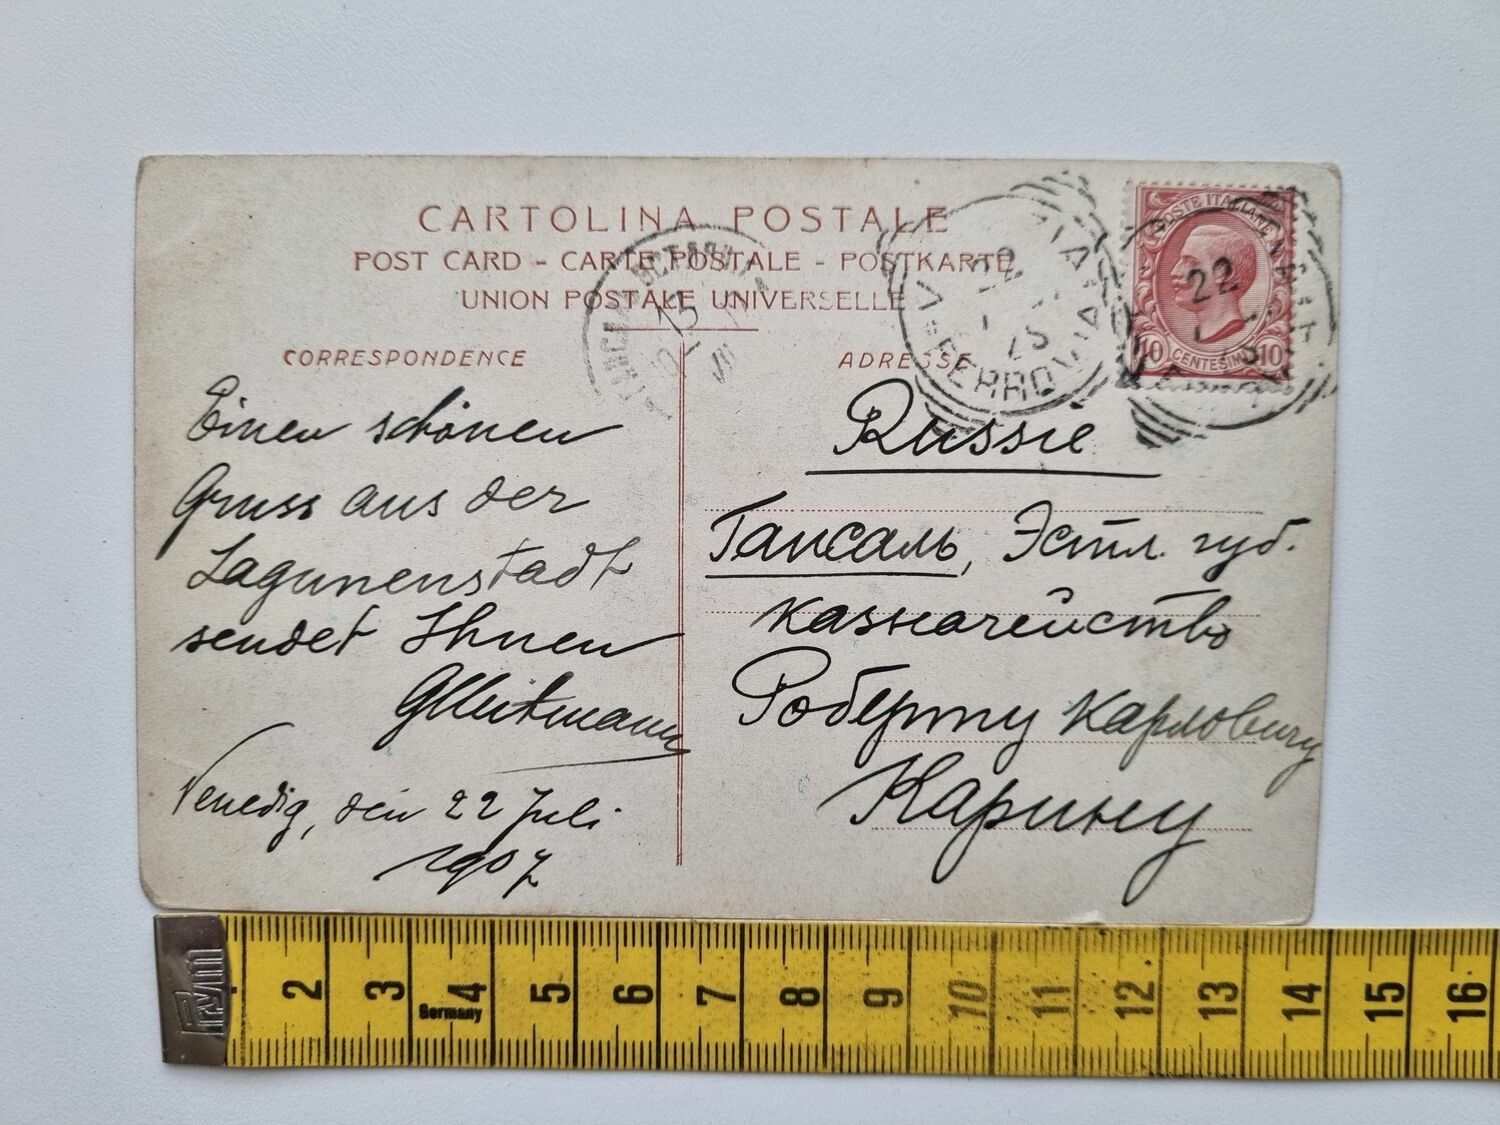 CARTOLINA POSTALE
POST CARD - CARTE POSTALE - POSTKARTE
UNION POSTALE UNIVERSELLE
CORRESPONDENCE
Einen schönen
Gruss aus der
Lagunenstadt
sendet Ihnen
Venedig, den 22 Juli
1907
ADRESSE
Russie
Гапсаль, Эстл. губ.
казначейство
Роберту Карловичу
Карину
POSTE ITALIANE
22
10 CENTESIMI 10
FERROVIA
22
15
2 3 4 5 6 7 8 9 10 11 12 13 14 15 16
Germany